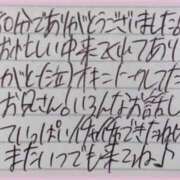 60分でありがとうございました
おいそがしい中来てくれてあり
がと(泣)オキニトークしてた
お兄さん。いろんなお話し
ていっぱいイチャイチャできたね
またいつでも来てね♪